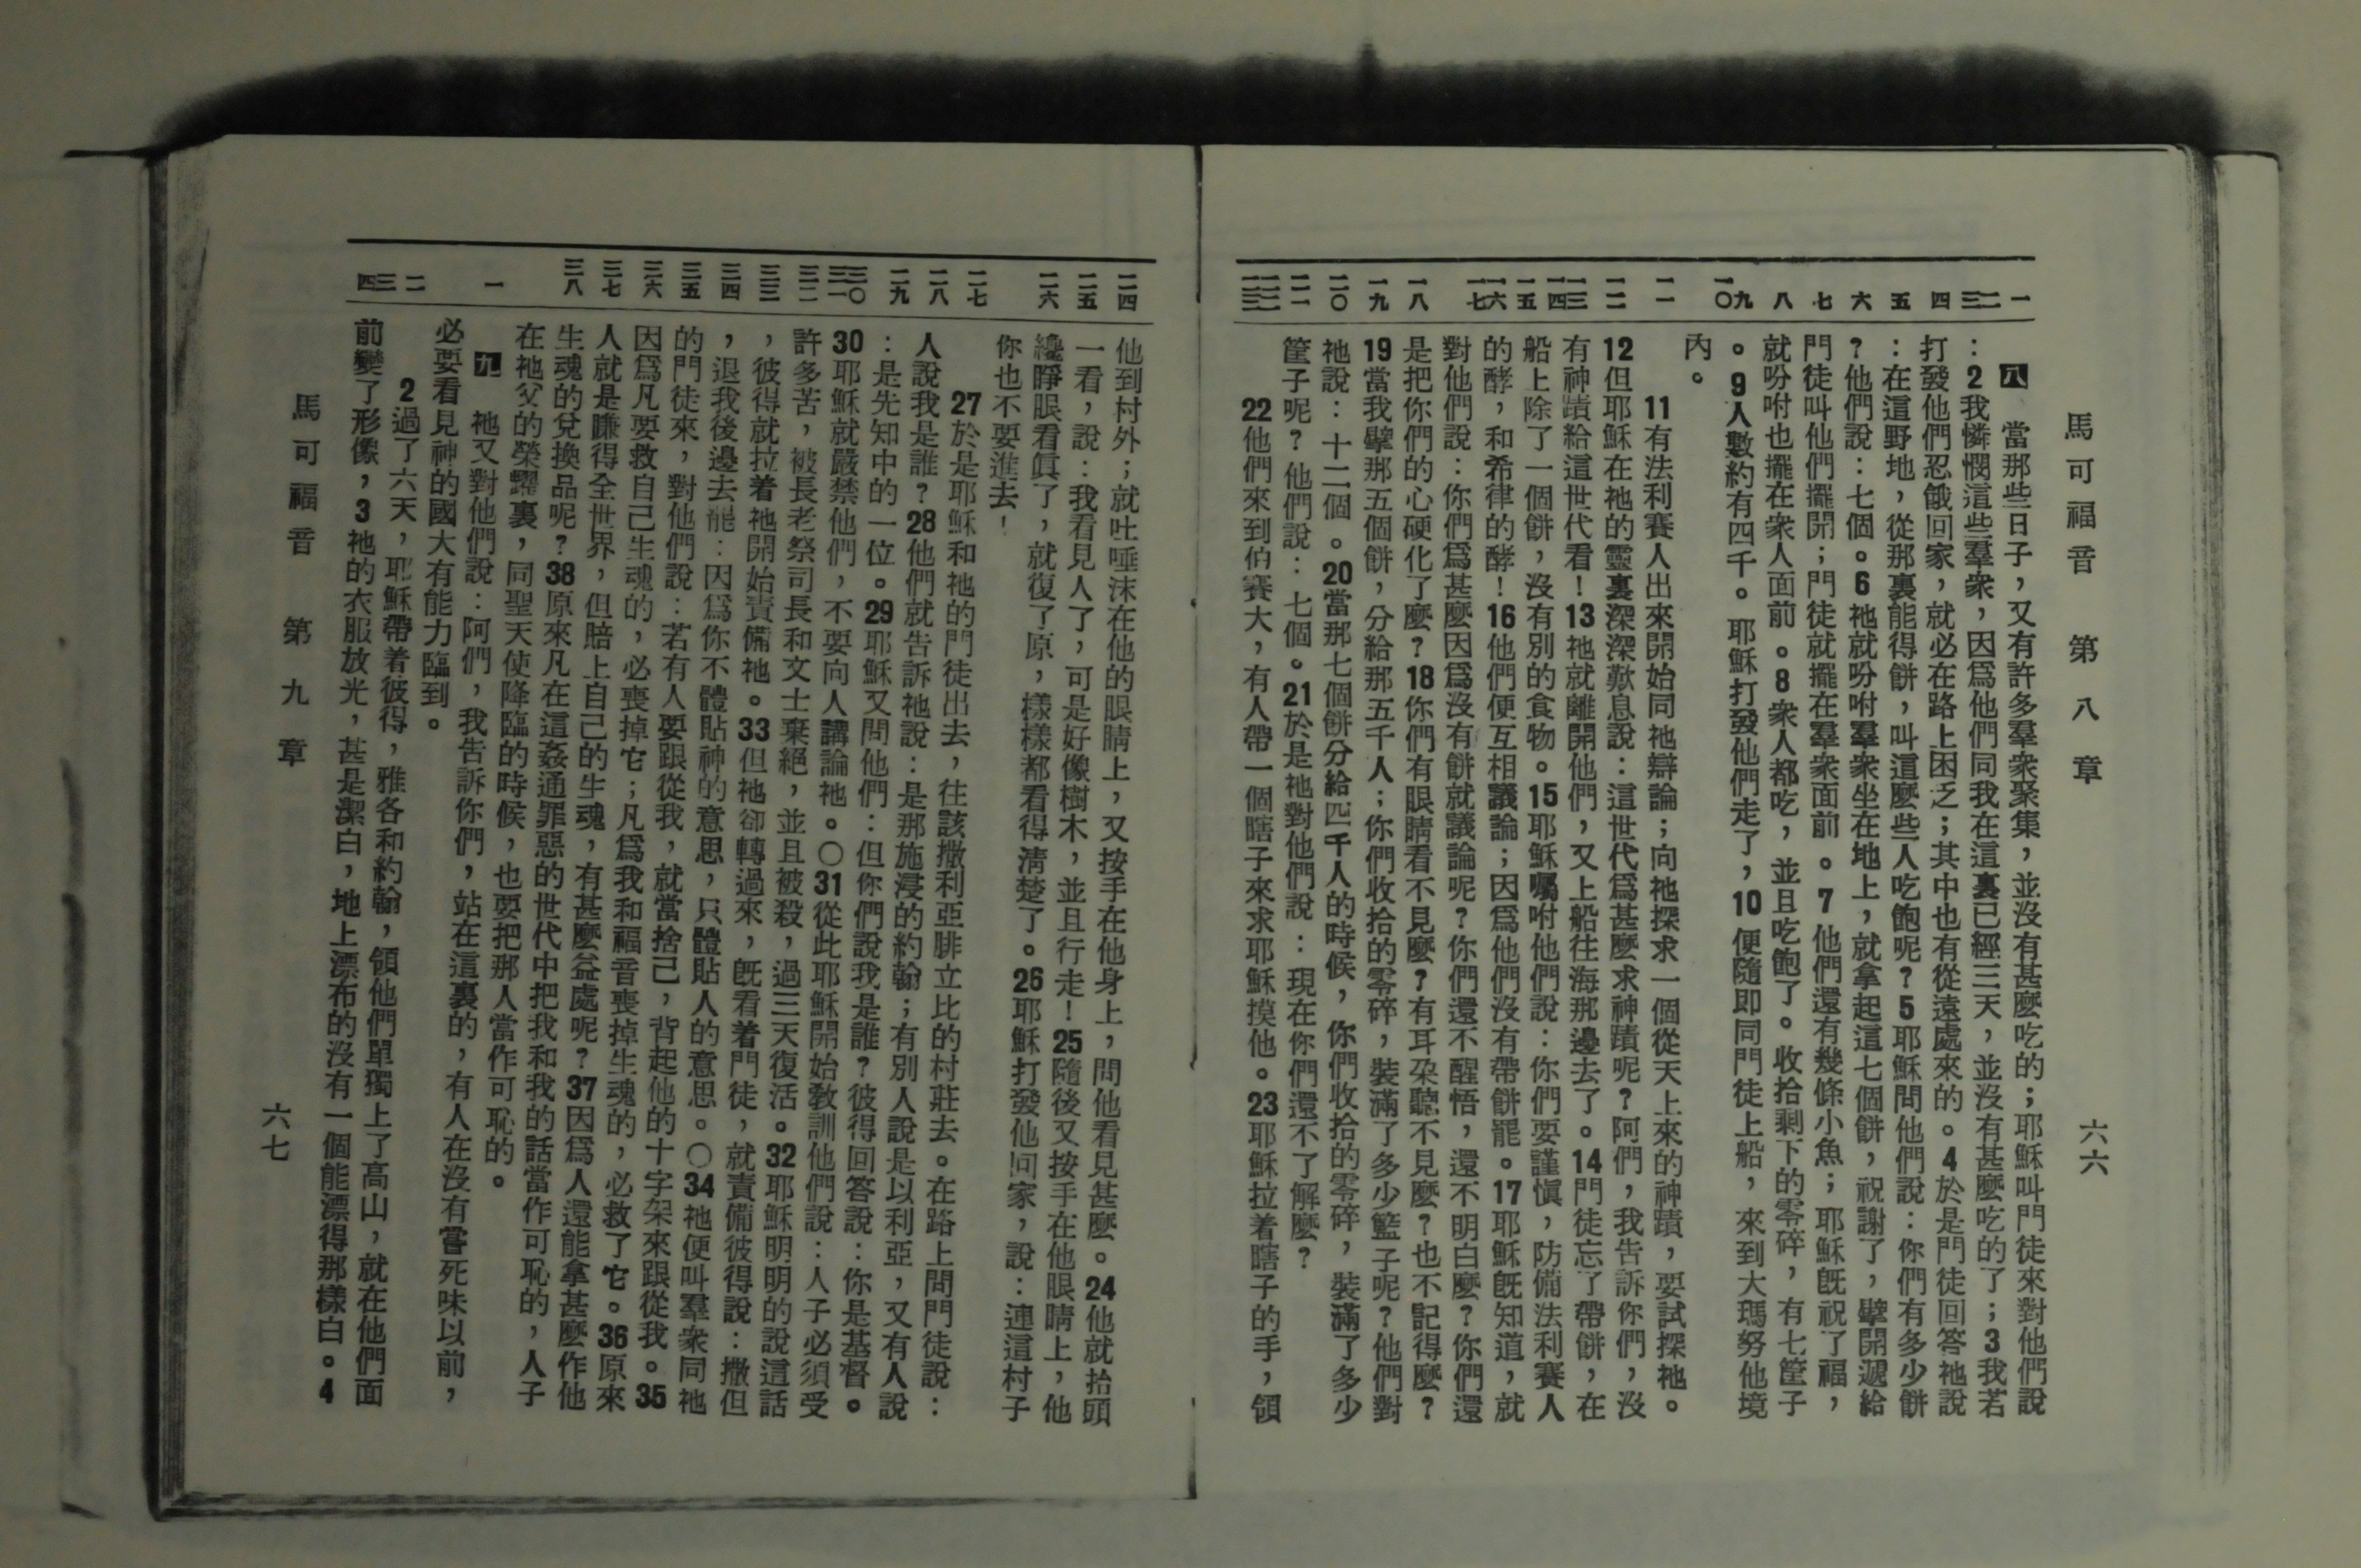 馬可福音 第八章 六六
一 二 三 四 五 六 七 八 九 一〇 一一 一二 一三 一四 一五 一六 一七 一八 一九 二〇 二一 二二 二三
八 當那些日子，又有許多羣衆聚集，並沒有甚麽吃的；耶穌叫門徒來對他們說
：2我憐憫這些羣衆，因爲他們同我在這裏已經三天，並沒有甚麽吃的了；3我若
打發他們忍餓回家，就必在路上困乏；其中也有從遠處來的。4於是門徒回答祂說
：在這野地，從那裏能得餅，叫這麽些人吃飽呢？5耶穌問他們說：你們有多少餅
？他們說：七個。6祂就吩咐羣衆坐在地上，就拿起這七個餅，祝謝了，擘開遞給
門徒叫他們擺開；門徒就擺在羣衆面前。7他們還有幾條小魚；耶穌旣祝了福，
就吩咐也擺在衆人面前。8衆人都吃，並且吃飽了。收拾剩下的零碎，有七筐子
。9人數約有四千。耶穌打發他們走了，10便隨即同門徒上船，來到大瑪努他境
內。
11有法利賽人出來開始同祂辯論；向祂探求一個從天上來的神蹟，要試探祂。
12但耶穌在祂的靈裏深深歎息說：這世代爲甚麽求神蹟呢？阿們，我告訴你們，沒
有神蹟給這世代看！13祂就離開他們，又上船往海那邊去了。14門徒忘了帶餅，在
船上除了一個餅，沒有別的食物。15耶穌囑咐他們說：你們要謹愼，防備法利賽人
的酵，和希律的酵！16他們便互相議論；因爲他們沒有帶餅罷。17耶穌旣知道，就
對他們說：你們爲甚麽因爲沒有餅就議論呢？你們還不醒悟，還不明白麽？你們還
是把你們的心硬化了麽？18你們有眼睛看不見麽？有耳朶聽不見麽？也不記得麽？
19當我擘那五個餅，分給那五千人；你們收拾的零碎，裝滿了多少籃子呢？他們對
祂說：十二個。20當那七個餅分給四千人的時候，你們收拾的零碎，裝滿了多少
筐子呢？他們說：七個。21於是祂對他們說：現在你們還不了解麽？
22他們來到伯賽大，有人帶一個瞎子來求耶穌摸他。23耶穌拉着瞎子的手，領
二四 二五 二六 二七 二八 二九 三〇 三一 三二 三三 三四 三五 三六 三七 三八 一 二 三 四
他到村外；就吐唾沫在他的眼睛上，又按手在他身上，問他看見甚麽。24他就抬頭
一看，說：我看見人了，可是好像樹木，並且行走！25隨後又按手在他眼睛上，他
纔睜眼看眞了，就復了原，樣樣都看得淸楚了。26耶穌打發他回家，說：連這村子
你也不要進去！
27於是耶穌和祂的門徒出去，往該撒利亞腓立比的村莊去。在路上問門徒說：
人說我是誰？28他們就告訴祂說：是那施浸的約翰；有別人說是以利亞，又有人說
：是先知中的一位。29耶穌又問他們：但你們說我是誰？彼得回答說：你是基督。
30耶穌就嚴禁他們，不要向人講論祂。○31從此耶穌開始敎訓他們說：人子必須受
許多苦，被長老祭司長和文士棄絕，並且被殺，過三天復活。32耶穌明明的說這話
，彼得就拉着祂開始責備祂。33但祂卻轉過來，旣看着門徒，就責備彼得說：撒但
，退我後邊去罷：因爲你不體貼神的意思，只體貼人的意思。○34祂便叫羣衆同祂
的門徒來，對他們說：若有人要跟從我，就當捨己，背起他的十字架來跟從我。35
因爲凡要救自己生魂的，必喪掉它；凡爲我和福音喪掉生魂的，必救了它。36原來
人就是賺得全世界，但賠上自己的生魂，有甚麽益處呢？37因爲人還能拿甚麽作他
生魂的兌換品呢？38原來凡在這姦通罪惡的世代中把我和我的話當作可恥的，人子
在祂父的榮耀裏，同聖天使降臨的時候，也要把那人當作可恥的。
九 祂又對他們說：阿們，我告訴你們，站在這裏的，有人在沒有嘗死味以前，
必要看見神的國大有能力臨到。
2過了六天，耶穌帶着彼得，雅各和約翰，領他們單獨上了高山，就在他們面
前變了形像，3祂的衣服放光，甚是潔白，地上漂布的沒有一個能漂得那樣白。4
馬可福音 第九章 六七